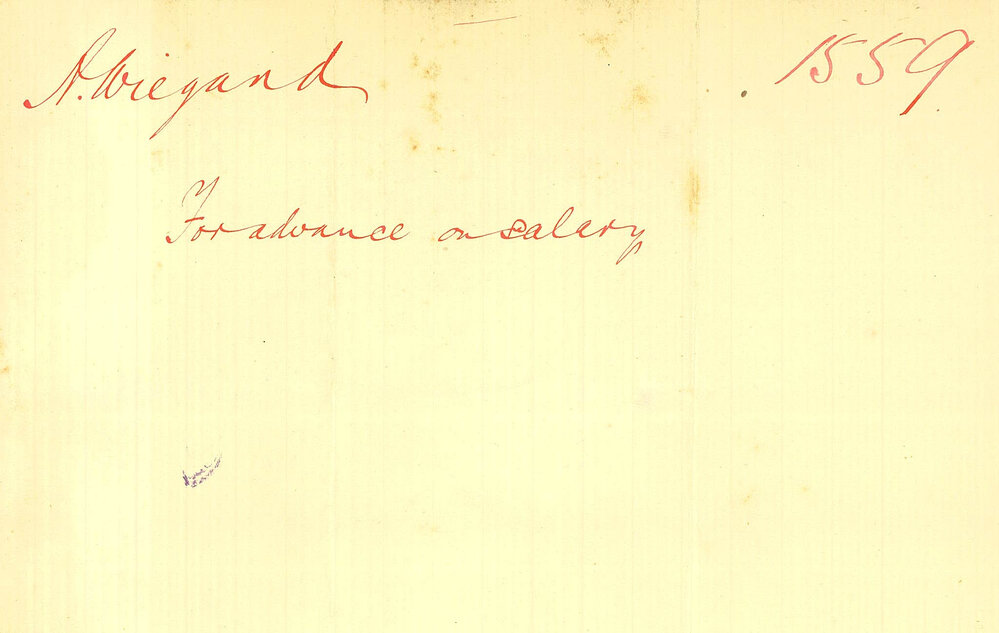 A. Wiegand 1559
For advance on salary